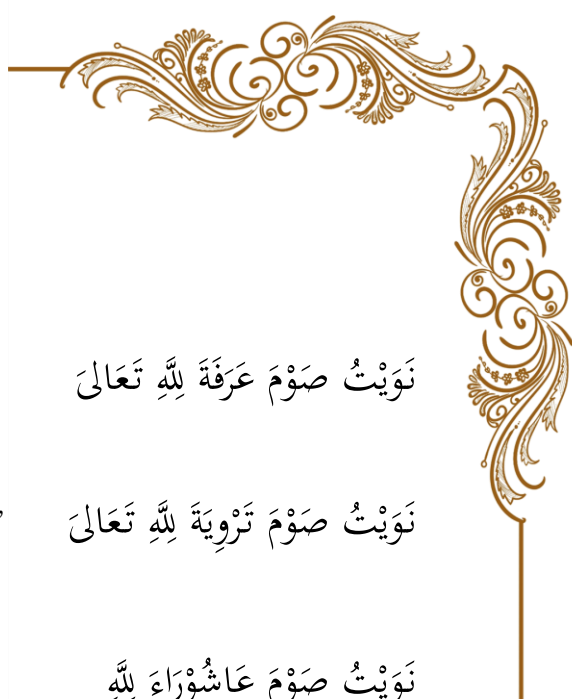 نَوَيْتُ صَوْمَ عَرَفَةَ لِلَّهِ تَعَالىَ
نَوَيْتُ صَوْمَ تَرْوِيَةَ لِلَّهِ تَعَالىَ
نَوَيْتُ صَوْمَ عَاشُوْرَاءَ لِلَّهِ